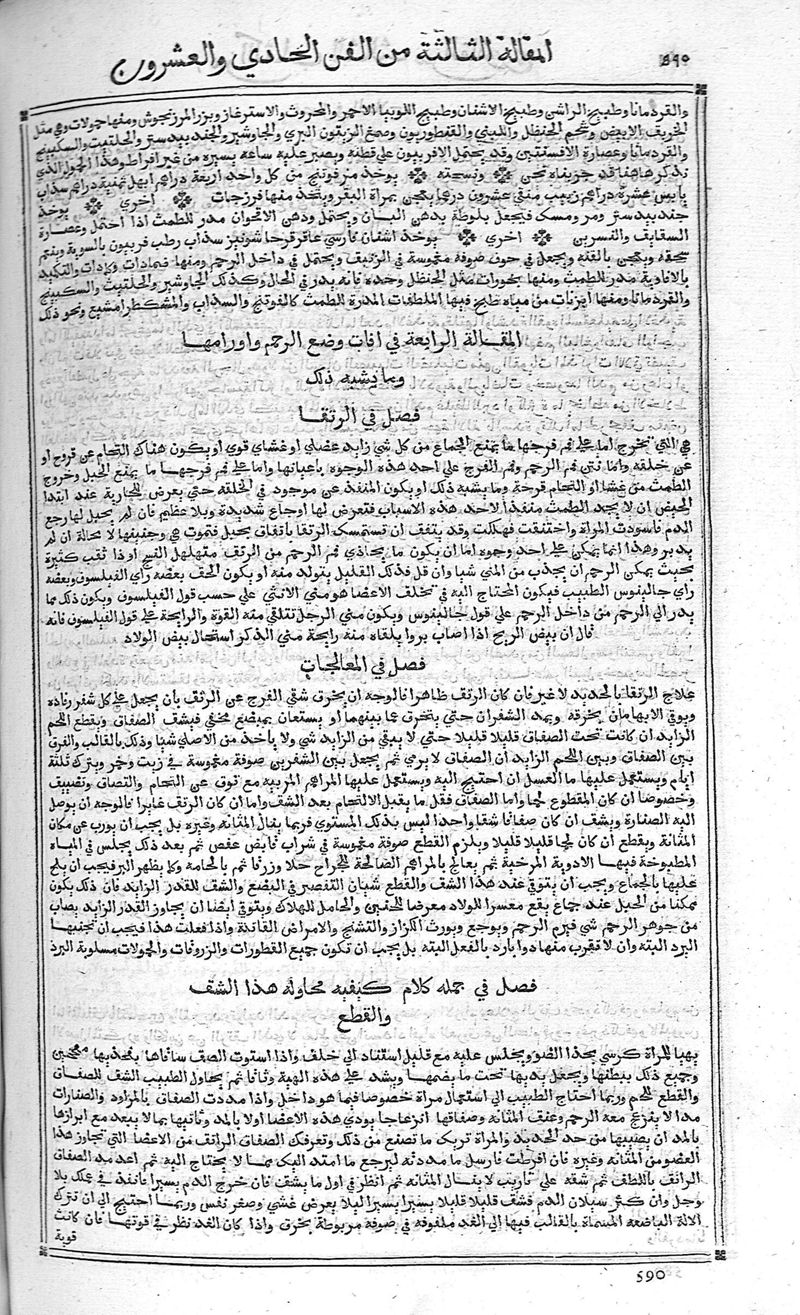 المقالة الثالثة من الفن الحادي والعشرون
٥٩٠
والقردمانا وطبيخ الراشي وطبيخ الاشنان وطبيخ اللوبيا الاحمر والمحروث والاسترغاز وبزر المرزنجوش ومنها حمولات وهي مثل
الخربق الابيض وشحم الحنظل واللبني والقنطوريون وصمغ الزيتون البري والجاوشير والجندبيدستر والحلتيت والسكبينج
والقردمانا وعصارة الافسنتين وقد يحتمل الافربيون على قطنة ويصبر عليه ساعة يسيرة من غير افراط وهذا الحمول الذي
نذكر هاهنا قد جربناه نحن ونسخته يوخذ مر فوتنج من كل واحد اربعة دراهم ابهل ثمنية دراهم سذاب
يابس عشرة دراهم زبيب منقي عشرون درهما يعجن بمراة البقر ويتخذ منها فرزجات اخري يوخذ
جندبيدستر ومر ومسك فيجعل بلوطة بدهن البان ويحتمل ودهن الاقحوان مدر للطمث اذا احتمل وعصارة
الشقايق والنسرين اخري يوخذ اشنان فارسي عاقرقرحا شونيز سذاب رطب فربيون بالسوية وينعم
سحقه ويعجن بالقنه ويجعل في جوف صوفة مغموسة في الزنبق ويحتمل في داخل الرحم ومنها ضمادات وكمادات والتكميد
بالافاوية مدر للطمث ومنها بخورات مثل الحنظل وحده فانه يدر في الحال وكذلك الجاوشير والحلتيث والسكبينج
والقردمانا ومنها ابزنات من مياه طبخ فيها الملطفات المدرة للطمث كالفوتنج والسذاب والمشكطرامشيع ونحو ذلك
المقالة الرابعة في افات وضع الرحم واورامها
وما يشبه ذلك
فصل في الرتقا
هي التي يخرج اما على فم فرجها ما يمنع الجماع من كل شي زايد عضلي او غشاي قوي او يكون هناك التحام عن قروح او
عن خلقه واما بين فم الرحم وفم الفرج على احد هذه الوجوه باعيانها واما على فم فرجها ما يمنع الحبل وخروج
الطمث من غشا او التحام قرحة وما يشبه ذلك او يكون المنفذ غير موجود في الخلقه حتي يعرض للجارية عند ابتدا
الحيض ان لا يجد الطمث منفذا لاحد هذه الاسباب فتعرض لها اوجاع شديدة وبلا عظيم فان لم يحيل لها رجع
الدم فاسودت المراة واختنقت فهلكت وقد يتفق ان تستمسك الرتقا باتفاق بحبل فتموت هي وجنينها لا محالة ان لم
يدبر وهذا انما يمكن على احد وجوه اما ان يكون ما يحاذي فم الرحم من الرتق متهلهل النسج او ذا ثقب كثيرة
بحيث يمكن الرحم ان يجذب من المني شيا وان قل فذلك القليل يتولد منه او يكون الحق بعضه راي الفيلسوف وبعضه
راي جالينوس الطبيب فيكون المحتاج اليه في تخلف الاعضا هو مني الانثي على حسب قول الفيلسوف ويكون ذلك مما
يدر الي الرحم من داخل الرحم على قول جالينوس ويكون مني الرجل تتلقي منه القوة والرايحة على قول الفيلسوف فانه
قال ان بيض الريح اذا اصاب بروا يلقاه منه رايحة مني الذكر استحال بيض الولاد
فصل في المعالجات
علاج الرتقا بالحديد لا غير فان كان الرتق ظاهرا فالوجه ان يخرق شقي الفرج عن الرتق بان يجعل على كل شفر رفاده
ويوقي الابهامان بخرقه ويمد الشفران حتي ينخرق عما بينهما او يستعان بمبضع مخفي فيشف الصفاق ويقطع اللحم
الزايد ان كانت تحت الصفاق قليلا قليلا حتي لا يبقي من الزايد شي ولا ياخذ من الاصلي شيا وذلك بالقالب والفرق
بين الصفاق وبين اللحم الزايد ان الصفاق لا يدمي ثم يجعل بين الشفرين صوفة مغموسة في زيت وخمر ويترك ثلثة
ايام ويستعمل عليها ما العسل ان احتيج اليه ويستعمل عليها المراهم المربيه مع توق عن التحام والتصاق وتضييق
وخصوصا ان كان المقطوع لحما واما الصفاق فقل ما يقبل الالتحام بعد الشق واما ان كان الرتق غايرا فالوجه ان يوصل
اليه الصنارة ويشف ان كان صفاقا شقا واحدا ليس بذلك المستوي فربما ينال المثانه وغيره بل يجب ان يورب عن مكان
المثانة ويقطع ان كان لحما قليلا قليلا ويلزم القطع صوفة مغموسة في شراب قابض عفص ثم بعد ذلك يجلس في المياه
المطبوخة فيها الادوية المرخية ثم يعالج بالمراهم الصالحة للجراح حلا وزرقا ثم بالحامة وكما يظهر البر فيجب ان يلح
عليها بالجماع ويجب ان يتوقي عند هذا الشق والقطع شيان التقصير في البضع والشق للقدر الزايد فان ذلك يكون
ممكنا من الحبل عند جماع يقع معسرا للولاد معرضا للجنين والحامل للهلاك ويتوقي ايضا ان يجاوز القدر الزايد يصاب
من جوهر الرحم شي فيرم الرحم ويوجع ويورث الكزاز والتشنج والامراض القاتلة واذا فعلت هذا فيجب ان تجنبها
البرد البته وان لا تقرب منها دوا بارد بالفعل البته بل يجب ان تكون جميع القطورات والزروقات والحمولات مسلوبة البرد
فصل في جمله كلام كيفيه محاولة هذا الشف
والقطع
يهيا للمراة كرسي بحذا الضوء ويجلس عليه مع قليل استناد الي خلف واذا استوت الصق ساقاها بفخذيها مفحجين
وجميع ذلك ببطنها ويجعل يديها تحت ما بضمها ويشد على هذه الهية وثاقا ثم يحاول الطبيب الشق للصفاق
والقطع للحم وربما احتاج الطبيب الي استعمال مراة خصوصا فيما هو داخل واذا مددت الصفاق بالمزاود والصنارات
مدا لا ينزعج معه الرحم وعنق المثانه وصفاقها انزعاجا يوذي هذه الاعضا اولا بالمد وثانيها بما لا يبعد مع ابرازها
بالمد ان يصيبها من حد الحديد والمراة تريك ما تصنع من ذلك وتعرفك الصفاق الراتق من الاعضا التي تجاوز هذا
العضو من المثانه وغيره فان افرطت فارسل ما مددته ليرجع ما امتد اليك مما لا يحتاج اليه ثم اعد مد الصفاق
الراتق باللطف ثم شقه على تاريب لا ينال المثانه ثم انظر في اول ما يشف فان خرج الدم يسيرا فانفذ في عملك بلا
وجل وان كثر سيلان الدم فشف قليلا قليلا يسيرا يسيرا ليلا يعرض غشي وصغر نفس وربما احتيج الي ان تترك
الالة الباضعه المسماة بالقالب فيها الي الغد ملفوفه في صوفة مربوطة بخرق واذا كان الغد نظر في قوتها فان كانت
قوية
590